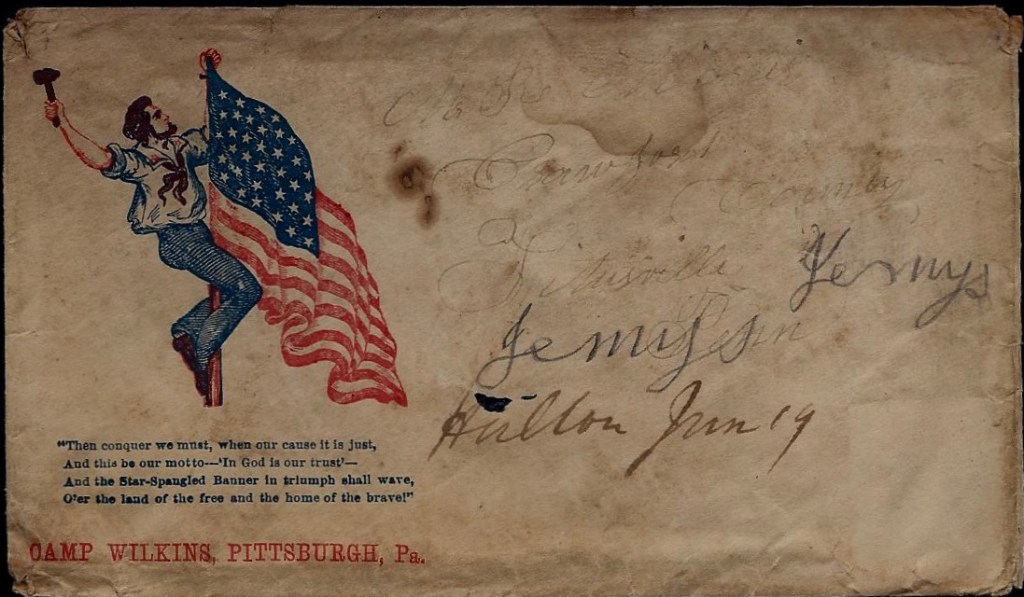 "Then conquer we must, when our cause it is just,
And this be our motto—'In God is our trust'—
And the Star-Spangled Banner in triumph shall wave,
O'er the land of the free and the home of the brave!"
CAMP WILKINS, PITTSBURGH, Pa.
Crawford
County
Titusville
Penn
Hulton Jun 19